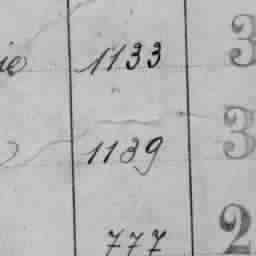 ie 1133 3
1139 3
777 2